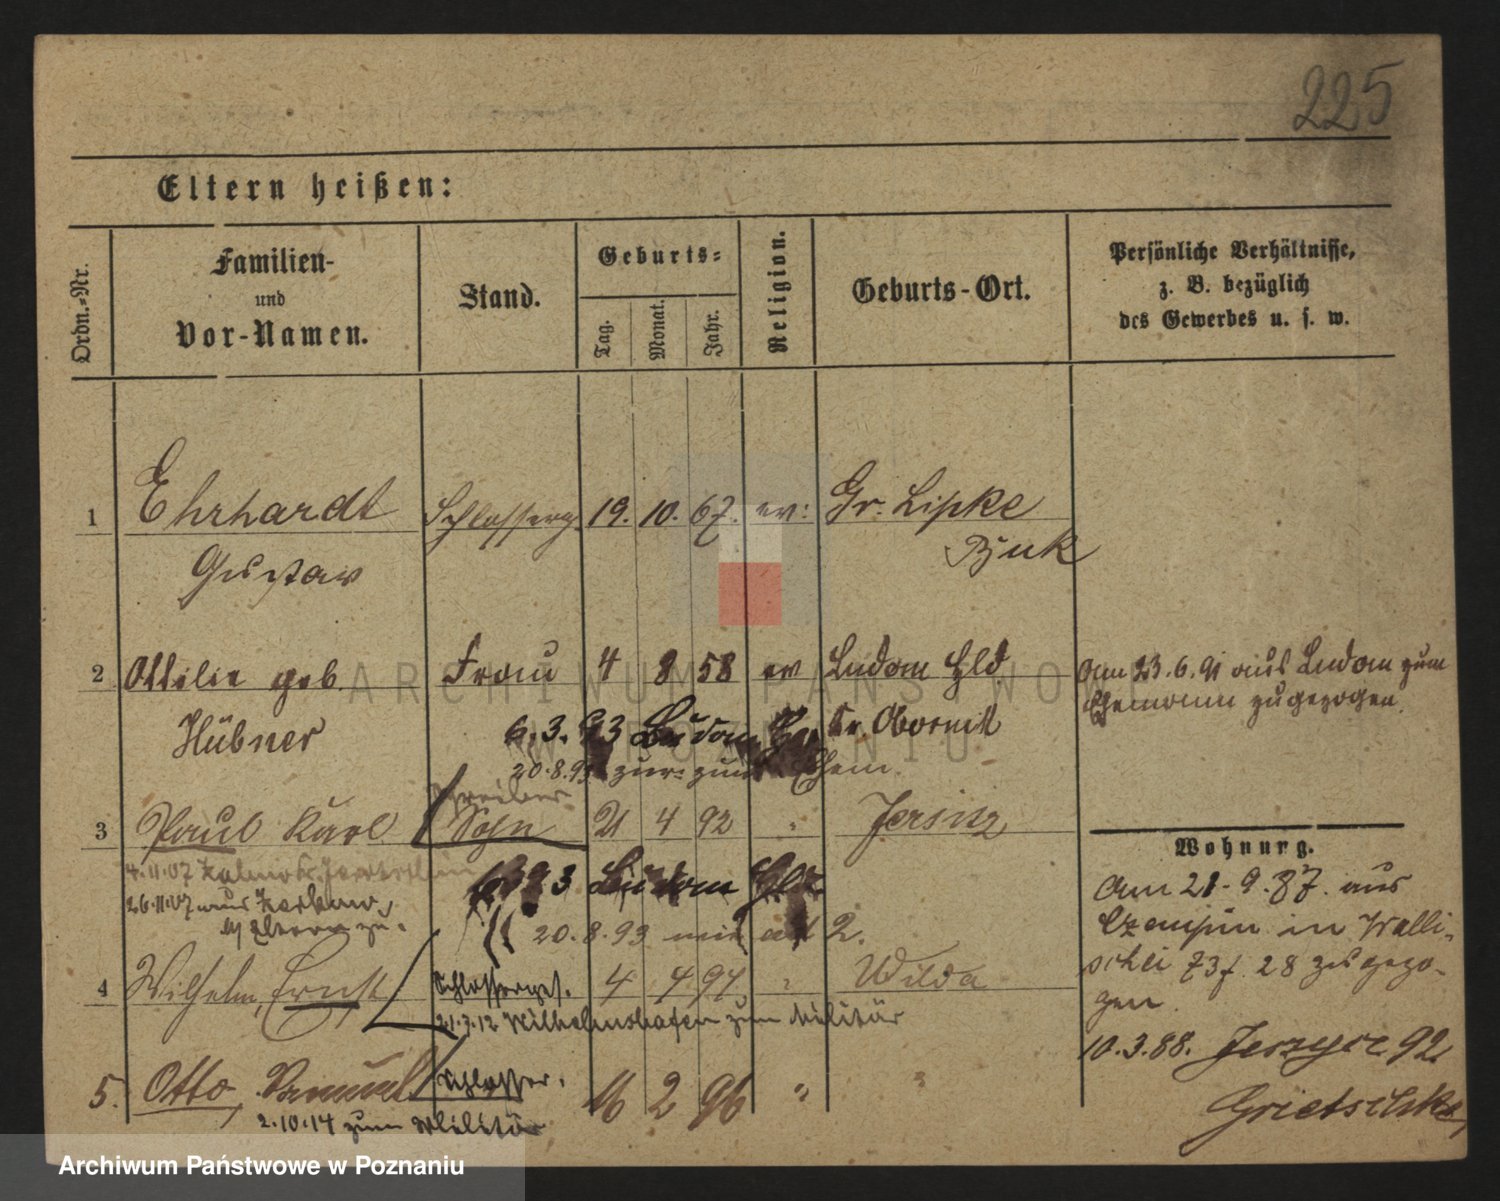 225
Eltern heißen:
Ordn.-Nr.
Familien-
und
Vor-Namen.
Stand.
Geburts-
Tag.
Monat.
Jahr.
Religion.
Geburts-Ort.
Persönliche Verhältnisse,
z. B. bezüglich
des Gewerbes u. s. w.
1 Ehrhardt Schlosserg. 19. 10. 67. ev: Gr. Lipke
Gustav
2 Ottilie geb. Frau 4 8 58 ev Ludom Hld.
Hübner
Kr. Obornik
Am 23.6.91 aus Ludom zum
Ehemann zugezogen.
6.3.93 Ludom
20.8.93 zur: zum Ehem.
Schreiber
3 Paul Karl Sohn 21 4 92 " Jersitz
4.11.07
26.11.07 aus
z/ Eltern zu.
6 3 93 Ludom Hld
20.8.93 mit ad 2.
4 Wilhelm, Ernst Schlosserges. 4 4 94 " Wilda
21.3.12 Wilhelmshafen zum Militär
5. Otto, Samuel Schlosser. 16 2 96 " "
2.10.14 zum Militär
Wohnung.
Am 21.9.87. aus
Czempin in Walli-
schei 73f. 28 zugezo-
gen
10.3.88. Jerzyce 92.
ARCHIWUM PAŃSTWOWE
W POZNANIU
Archiwum Państwowe w Poznaniu